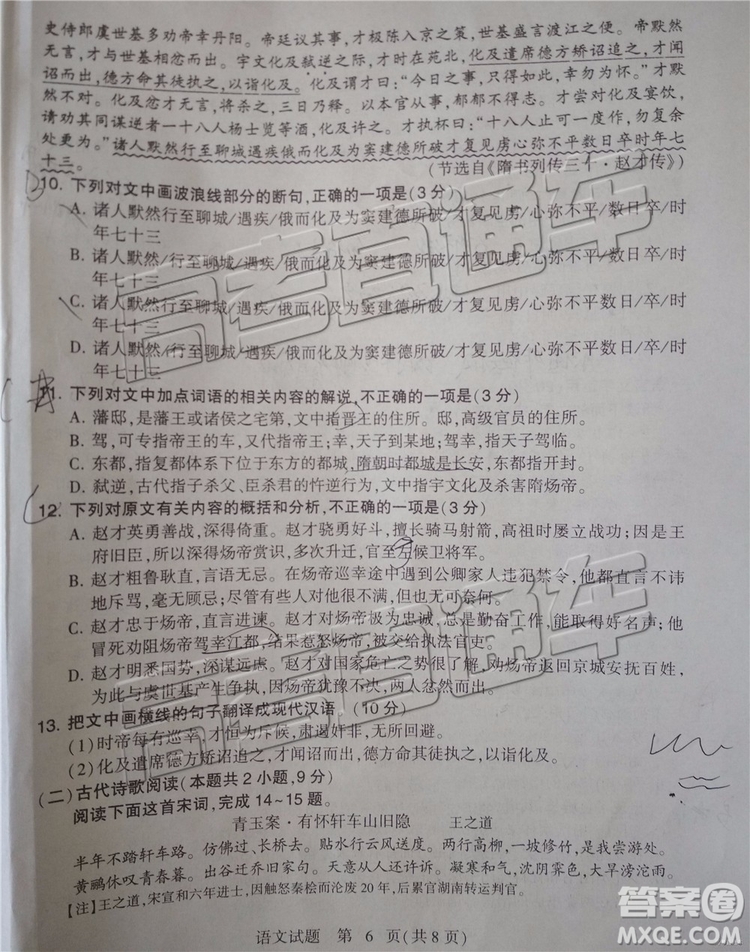 史侍郎虞世基多劝帝幸丹阳。帝廷议其事,才极陈入京之策,世基盛言渡江之便。帝默然
无言,才与世基相忿而出。宇文化及弑逆之际,才时在苑北,化及遣席德方矫诏追之,才闻
诏而出,德方命其徒执之,以诣化及。化及谓才曰:“今日之事,只得如此,幸勿为怀。”才默
然不对。化及忿才无言,将杀之,三日乃释。以本官从事,郁郁不得志。才尝对化及宴饮,
请劝其同谋逆者一十八人杨士览等酒,化及许之。才执杯曰:“十八人止可一度作,勿复余
处更为。”诸人默然行至聊城遇疾俄而化及为窦建德所破才复见虏心弥不平数日卒时年七
十三。
(节选自《隋书列传三十·赵才传》)
10. 下列对文中画波浪线部分的断句,正确的一项是(3分)
A. 诸人默然行至聊城/遇疾/俄而化及为窦建德所破/才复见虏/心弥不平/数日卒/时
年七十三
B. 诸人默然/行至聊城/遇疾/俄而化及为窦建德所破/才复见虏/心弥不平/数日卒/时
年七十三
C. 诸人默然行至聊城/遇疾/俄而化及为窦建德所破/才复见虏/心弥不平数日/卒/时
年七十三
D. 诸人默然/行至聊城/遇疾/俄而化及为窦建德所破/才复见虏/心弥不平数日/卒/时
年七十三
11. 下列对文中加点词语的相关内容的解说,不正确的一项是(3分)
A. 藩邸,是藩王或者诸侯之宅第,文中指晋王的住所。邸,高级官员的住所。
B. 驾,可专指帝王的车,又代指帝王;幸,天子到某地;驾幸,指天子驾临。
C. 东都,指都城体系下位于东方的都城,隋朝时都城是长安,东都指开封。
D. 弑逆,古代指子杀父、臣杀君的忤逆行为,文中指宇文化及杀害隋炀帝。
12. 下列对原文有关内容的概括和分析,不正确的一项是(3分)
A. 赵才英勇善战,深得倚重。赵才骁勇好斗,擅长骑马射箭,高祖时屡立战功;因是王
府旧臣,所以深得炀帝赏识,多次升迁,官至右候卫将军。
B. 赵才粗鲁耿直,言语无忌。在炀帝巡幸途中遇到公卿家人违犯禁令,他都直言不讳
地斥骂,毫无顾忌;尽管有些人对他很不满,但也无可奈何。
C. 赵才忠于炀帝,直言进谏。赵才感受到炀帝对他的恩宠,总是勤奋工作,能尽职尽责;他
冒死劝阻炀帝驾幸江都,结果惹怒炀帝,被交给执法官吏。
D. 赵才明悉国势,深谋远虑。赵才面对国家危亡之机的形势,劝炀帝回京城安抚百姓,
为此与虞世基产生争执,因炀帝犹豫不决,两人愤然离去。
13. 把文中画横线的句子翻译成现代汉语。(10分)
(1)时帝每有巡幸,才恒为斥候,肃遏奸非,无所回避。
(2)化及遣席德方矫诏追之,才闻诏而出,德方命其徒执之,以诣化及。
(二)古代诗歌阅读(本题共2小题,9分)
阅读下面这首宋词,完成14~15题。
青玉案·有怀轩车山旧隐 王之道
半年不踏轩车路。仿佛过、长桥去。贴水行云风送度。两行高柳,一坡修竹,是我尝游处。
黄鹂休叹青春暮。出谷迁乔旧家句。凝寒和气,沈阴霁色,大旱滂沱雨。
[注]王之道,宋宣和六年进士,因触忤秦桧而沦废20年,后累官湖南转运判官。
语文试题 第 6 页(共8页)
高考直通车
高考直通车
答案圈
MXQE.COM